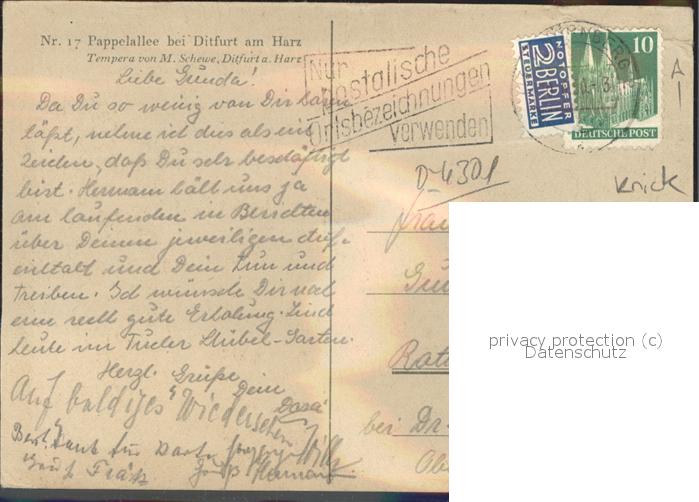 Nr. 17 Pappelallee bei Ditfurt am Harz
Tempera von M. Schewe, Ditfurt a. Harz
Liebe Gunda!
Da Du so wenig von Dir hören
läßt, nehme ich dies als ein
Zeichen, daß Du sehr beschäftigt
bist. Hermann hält uns ja
am laufenden in Berichten
über Deinen jeweiligen Auf-
enthalt und Dein Tun und
Treiben. Ich wünsche Dir mal
eine recht gute Erholung. Sind
heute im Stübel-Garten.
Herzl. Grüße
Dein
Auf baldiges Wiedersehen
Dank für Karte
Willy
Nur
postalische
Ortsbezeichnungen
verwenden
NOTOPFER
2 BERLIN
STEUERMARKE
NÜRNBERG
10
DEUTSCHE POST
A
D-4301
Knick
Frau
Gu
Rat
bei Dr.
Ob
privacy protection (c)
Datenschutz